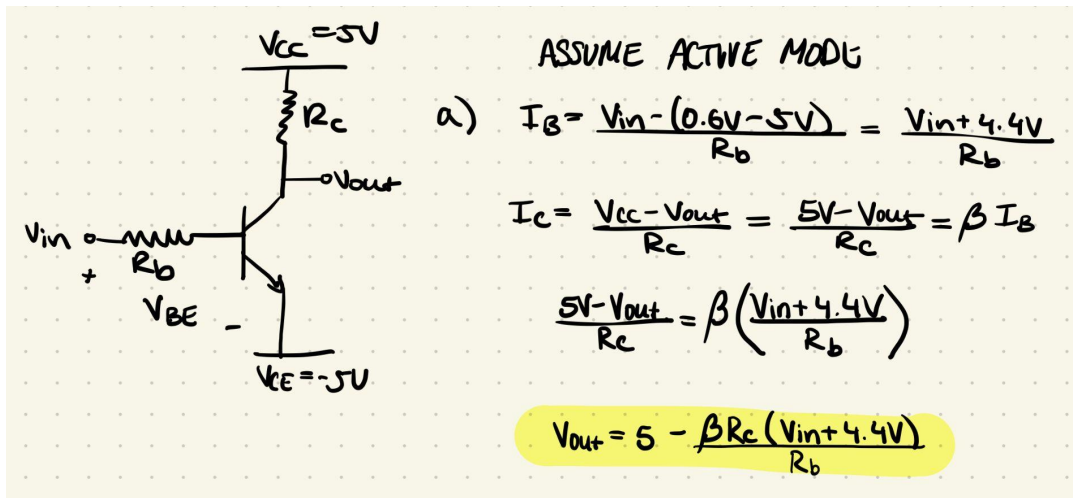 Vcc = 5V
Rc
Vout
Vin
+
Rb
VBE
-
VCE = -5V
ASSUME ACTIVE MODE
a) IB = Vin - (0.6V - 5V) / Rb = Vin + 4.4V / Rb
Ic = Vcc - Vout / Rc = 5V - Vout / Rc = β IB
5V - Vout / Rc = β (Vin + 4.4V / Rb)
Vout = 5 - βRc (Vin + 4.4V) / Rb